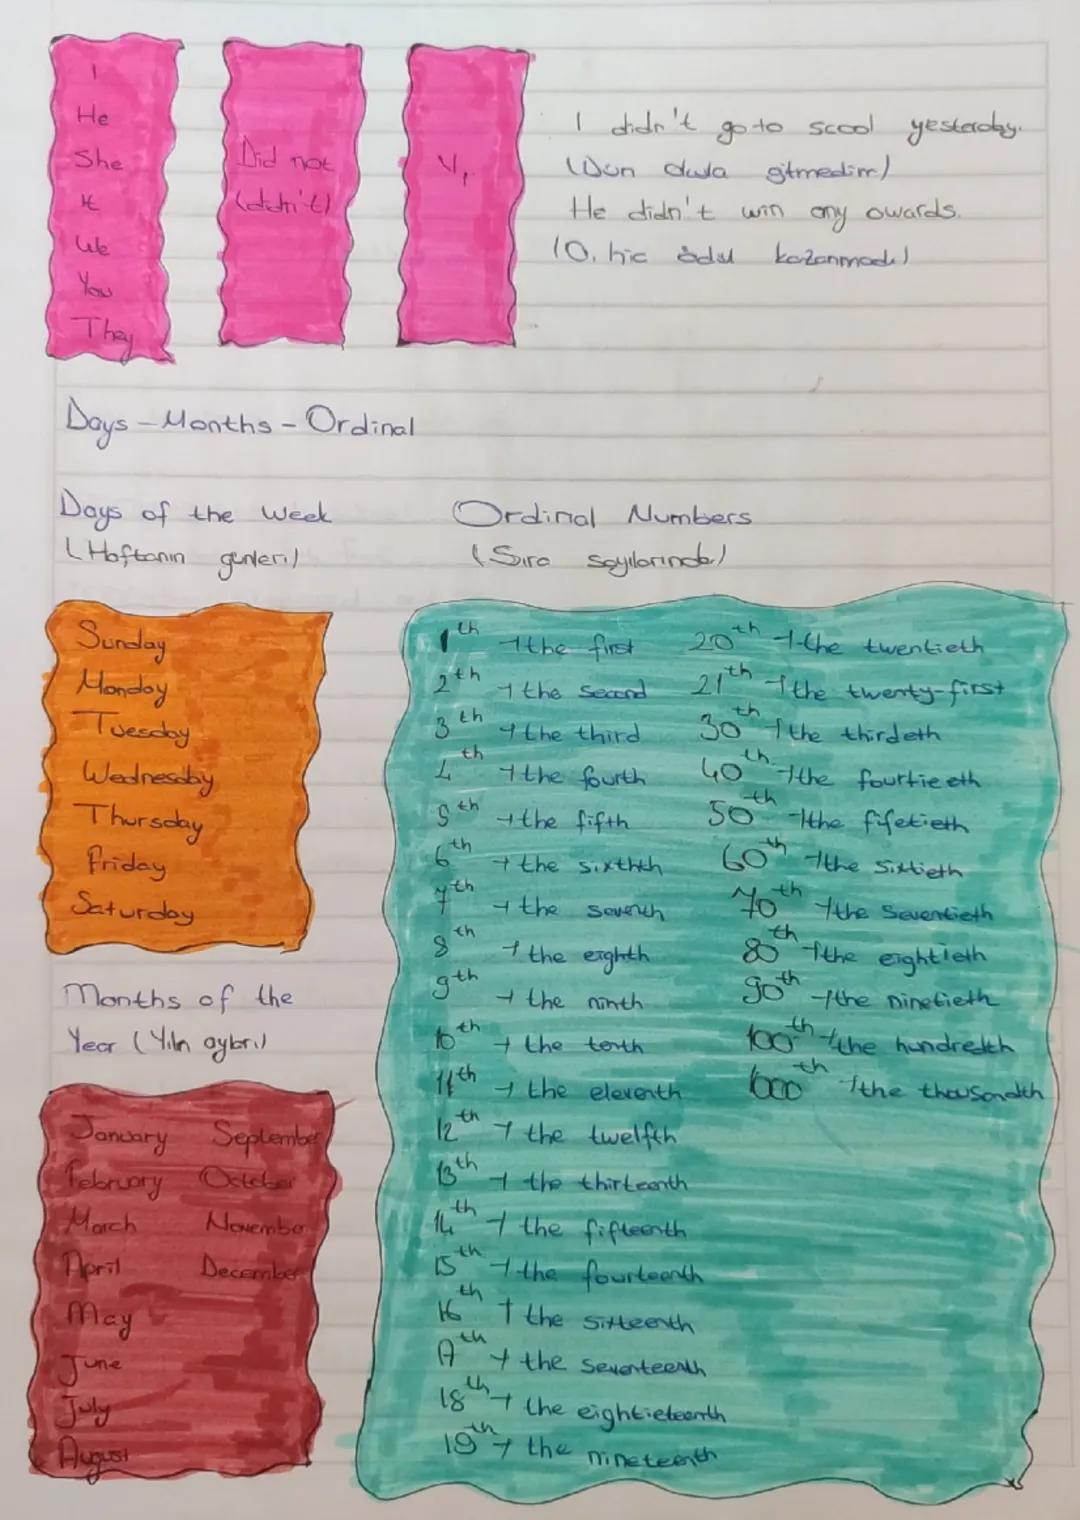 I
He
She
It
We
You
They
Did not
(didn't)
V₁
I didn't go to scool yesterday.
(Dün okula gitmedim)
He didn't win any awards.
(O, hiç ödül kazanmadı)
Days - Months - Ordinal
Days of the Week
(Haftanın günleri)
Sunday
Monday
Tuesday
Wednesday
Thursday
Friday
Saturday
Months of the
Year (Yılın ayları)
January September
February October
March November
April December
May
June
July
August
Ordinal Numbers
(Sıra sayılarında)
1th → the first
2th → the second
3th → the third
4th → the fourth
5th → the fifth
6th → the sixthth
7th → the seventh
8th → the eighth
9th → the ninth
10th → the tenth
11th → the eleventh
12th → the twelfth
13th → the thirteenth
14th → the fifteenth
15th → the fourteenth
16th → the sixteenth
17th → the seventeenth
18th → the eightieteenth
19th → the nineteenth
20th → the twentieth
21th → the twenty-first
30th → the thirdeth
40th → the fourtieeth
50th → the fifetieth
60th → the sixtieth
70th → the seventieth
80th → the eightieth
90th → the ninetieth
100th → the hundredth
1000th → the thousandth